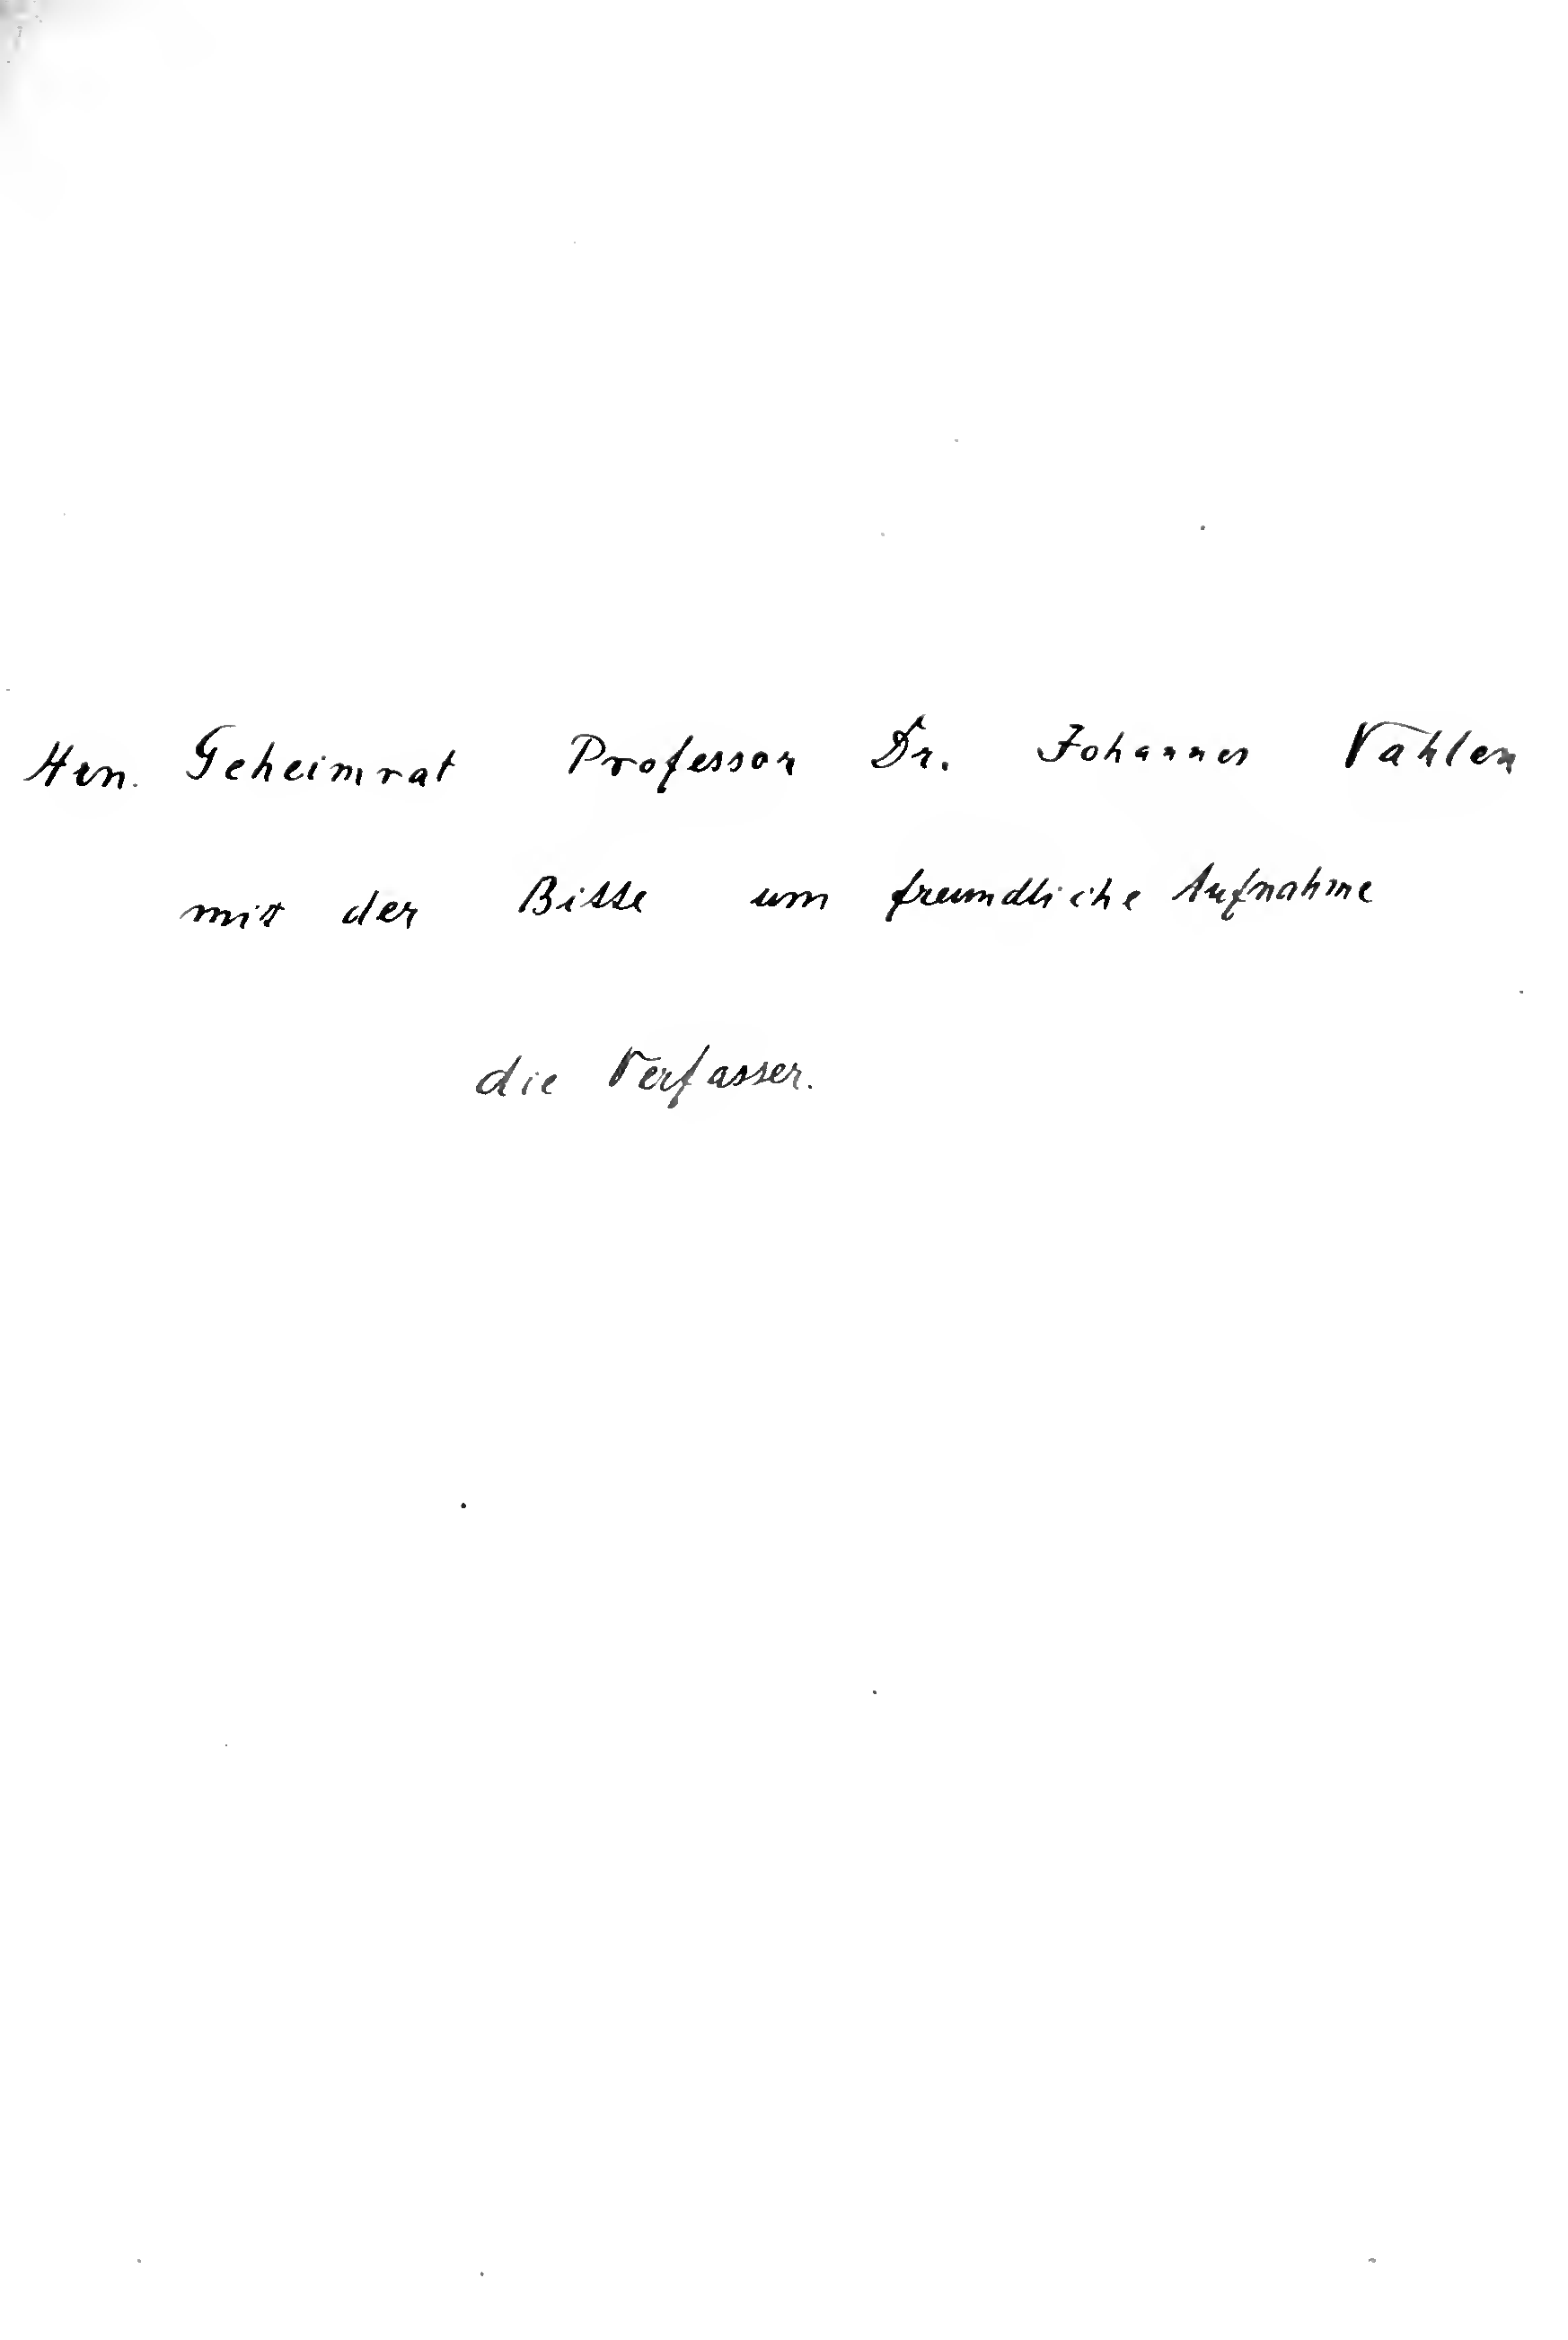 Hrn. Geheimrat Professor Dr. Johannes Vahlen
mit der Bitte um freundliche Aufnahme
die Verfasser.